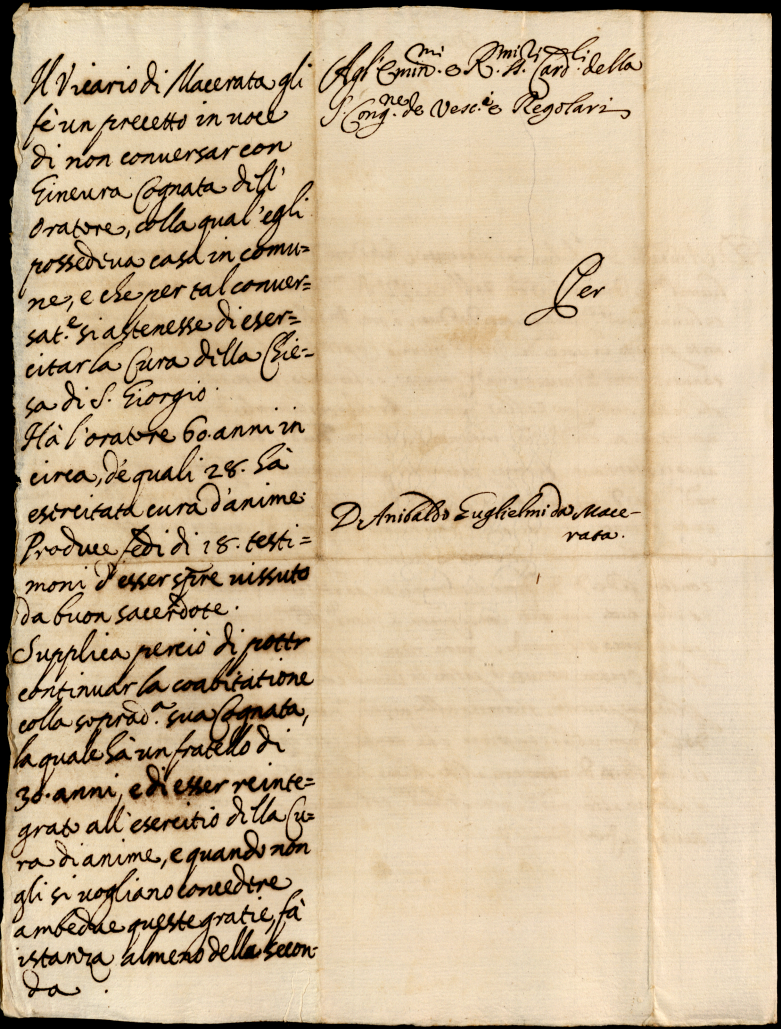 Il Vicario di Macerata gli
fè un precetto in voce
di non conversar con
Gineura Cognata dell'
Oratore, colla qual'egli
possedeva casa in comu=
ne, e che per tal conver=
sat.e si astenesse di eser=
citar la Cura della Chie=
sa di S. Giorgio.
Hà l'oratore 60. anni in
circa, de quali 28. hà
esercitata cura d'anime.
Produce fedi di 18. testi=
moni d'esser sp̃re vissuto
da buon sacerdote.
Supplica perciò di poter
continuar la coabitatione
colla soprad.a sua Cognata,
la quale hà un fratello di
30. anni, e di esser reinte=
grato all'esercitio della Cu=
ra di anime, e quando non
gli si vogliano concedere
ambedue queste gratie, fà
istanza almeno della secon=
da.
Agl'Emin.mi e R.mi SS.ri Card.li della
S. Cong.ne de Vesc.i e Regolari
Per
D. Anibaldo Guglielmi da Mace-
rata.